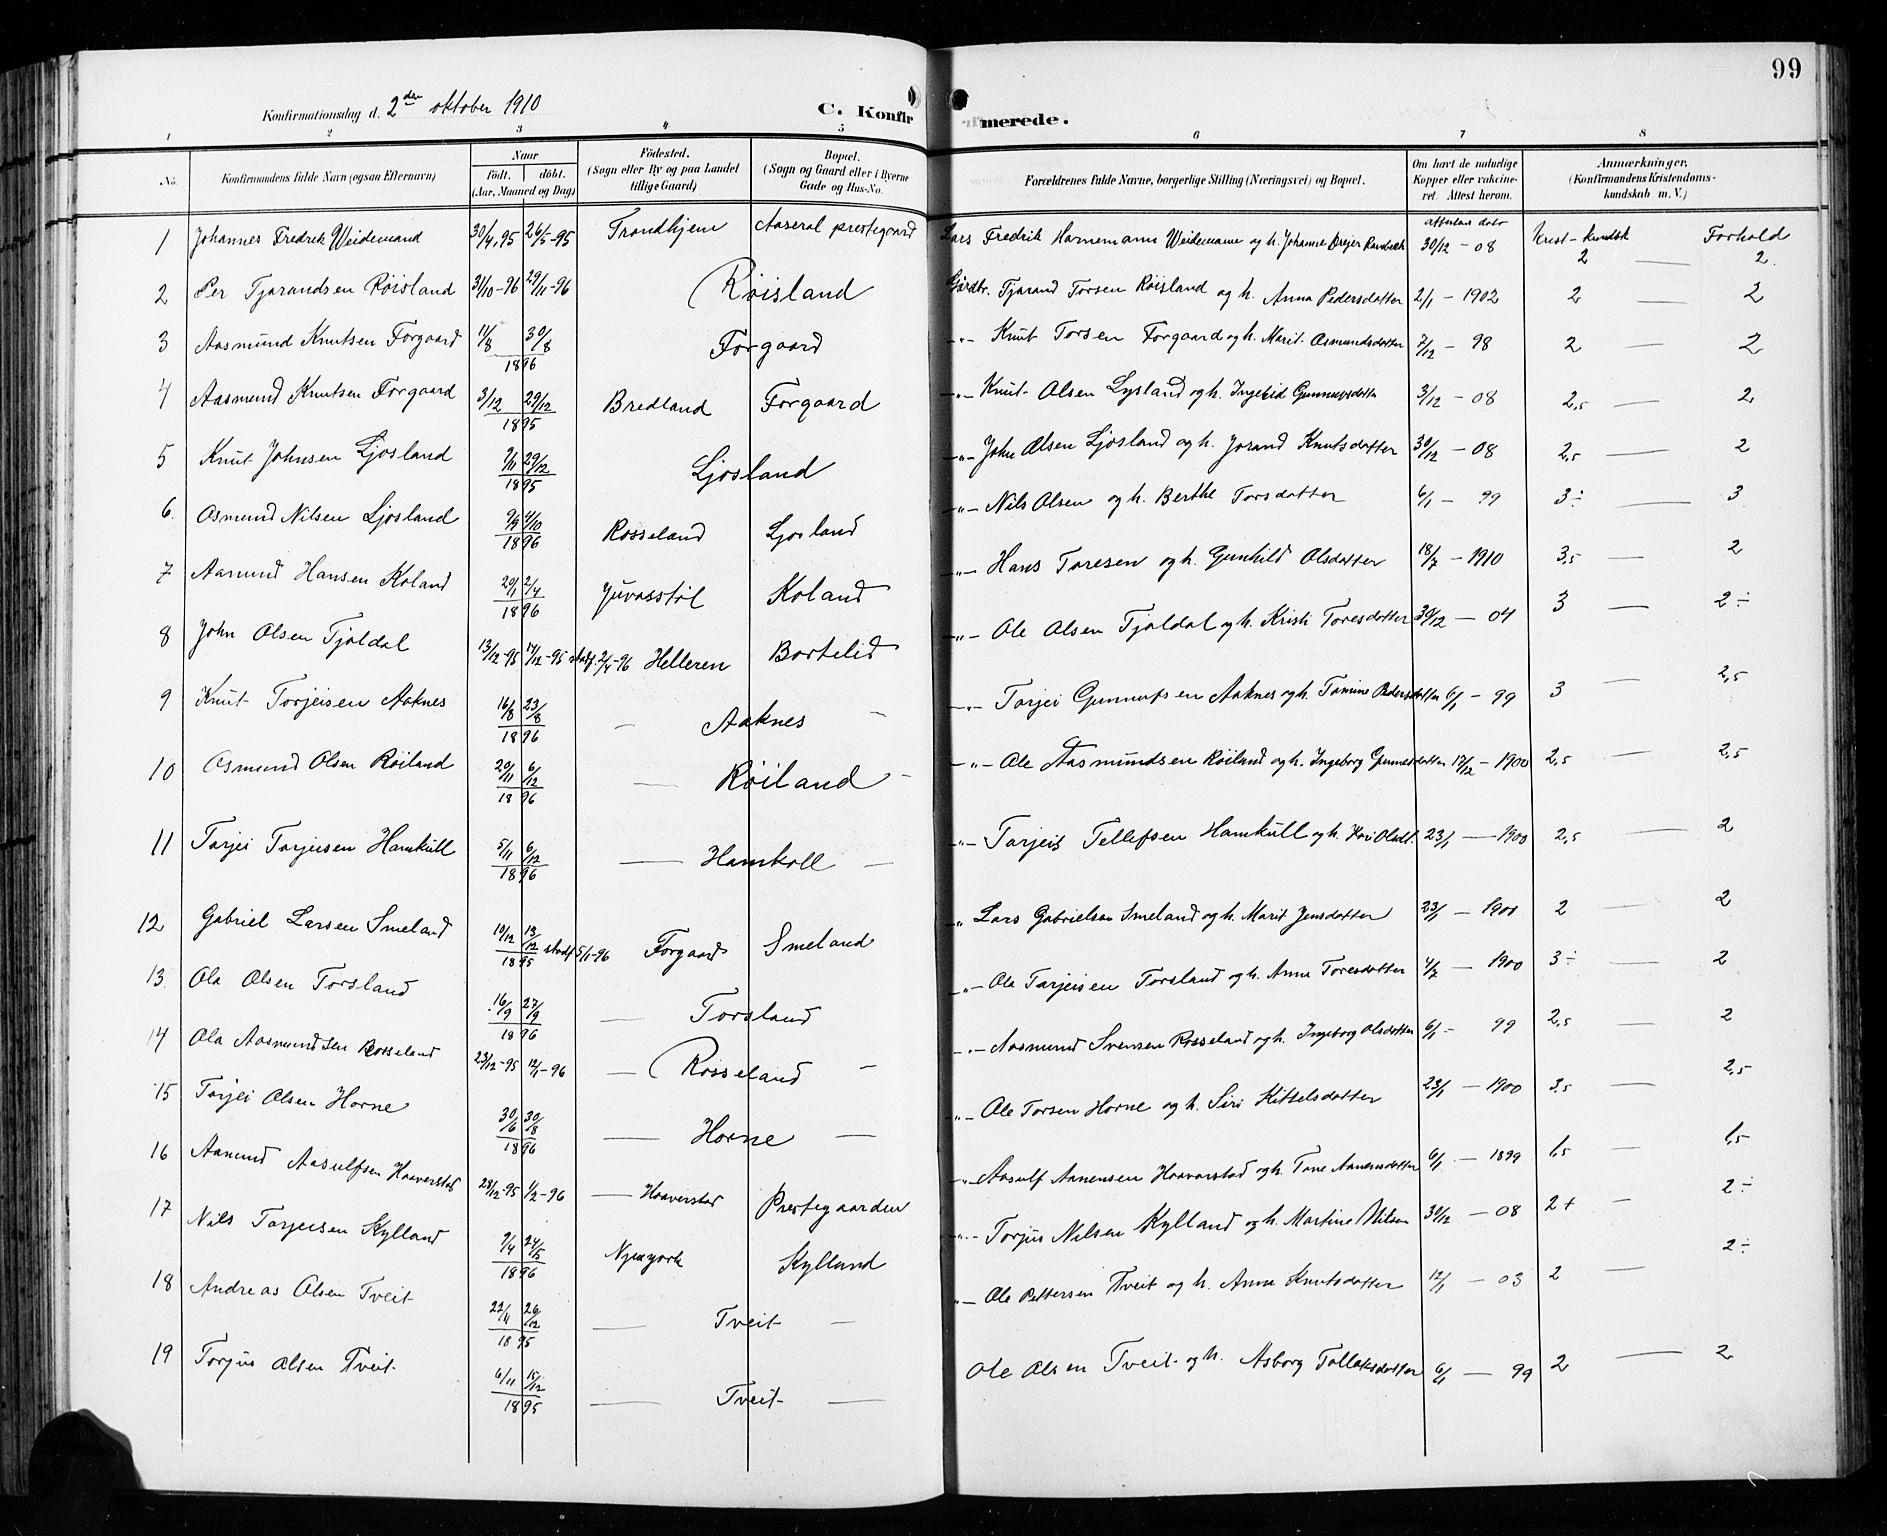 99
Konfirmationsdag d. 2den oktober 1910
C. Konfirmerede.
1 2 3 4 5 6 7 8
No. Konfirmandens fulde Navn (ogsaa Efternavn) Naar født. døbt. (Aar, Maaned og Dag) Fødested. (Sogn eller By og paa Landet tillige Gaard) Bopæl. (Sogn og Gaard eller i Byerne Gade og Hus-No. Forældrenes fulde Navne, borgerlige Stilling (Næringsvei) og Bopæl. Om havt de naturlige Kopper eller vakcineret. Attest herom. Anmærkninger. (Konfirmandens Kristendomskundskab m. V.)
attestens dato Krist-kundsk Forhold
1 Johannes Fredrik Weidemand 30/4, 95 26/5-95 Trondhjem Aaseral prestegaard Lars Fredrik Hornemann Weidemann og h. Johanne Drejer 30/12-08 2 — 2.
2 Per Tjarandsen Röisland 31/10-96 29/11-96 Röisland Gårdbr. Tjarand Torsen Röisland og h. Anna Pedersdatter 2/1-1902 2 — 2
3 Aasmund Knutsen Forgaard 11/8 30/8 1896 Forgaard -"- Knut Torsen Forgaard og h. Marit Osmundsdatter 7/12-98 2 — 2
4 Aasmund Knutsen Forgaard 3/12 29/12 1895 Bredland Forgaard -"- Knut Olsen Lysland og h. Ingebid 3/12-08 2,5 — 2
5 Knut Johnsen Ljosland 9/11 29/12 1895 Ljosland -"- John Olsen Ljosland og h. Jorand Knutsdatter 30/12-08 2,5 — 2
6. Osmund Nilsen Ljosland 9/9 4/10 1896 Rosseland Ljosland -"- Nils Olsen og h. Berthe Torsdatter 6/1-99 3÷ — 3
7 Aamund Hansen Koland 20/1 2/4 1896 Juvasstöl Koland -"- Hans Toresen og h. Gunhild Olsdatter 18/7-1910 3,5 — 2
8 John Olsen Tjaldal 13/12-95 17/12-95 stadf. 2/4-96 Helleren Bortelid -"- Ole Olsen Tjaldal og h. Kristi Toresdatter 30/12-04 3 — 2÷
9 Knut Torjeisen Aaknes 16/8 23/8 1896 — Aaknes — -"- Torjei Gunnufsen Aaknes og h. Tomine Pedersdatter 6/1-99 3 — 2,5
10 Osmund Olsen Röiland 20/11 6/12 1896 — Röiland - -"- Ole Aasmundsen Röiland og h. Ingeborg 17/12-1900 2,5 — 2,5
11 Torjei Torjeisen Hamkull 5/11 6/12 1896 — Hamkoll — "- Torjeis Tellefsen Hamkull og h. Kari Olsdt. 23/1—1900 2,5 — 2
12 Gabriel Larsen Smeland 10/12 13/12 1895 stadf 5/1-96 Forgaard Smeland " Lars Gabrielsen Smeland og h. Marit Jensdatter 23/1-1900 2 — 2
13 Ola Olsen Torsland 16/9 27/9 1896 — Torsland -"- Ole Torjeisen Torsland og h. Anna Toresdatter 4/7-1900 3÷ — 2
14 Ola Aasmundsen Rosseland 23/12-95 12/1-96 — Rosseland — -"- Aasmund Svensen Rosseland og h. Ingeborg Olsdatter 6/1-99 2,5 — 2
15 Torjei Olsen Horne 30/6 30/8 1896 — Horne — -"- Ole Torsen Horne og h. Siri Kittelsdatter 23/1-1900 3,5 — 2,5
16 Aanund Aasulfsen Haaverstad 28/12-95 1/2-96 — Haaverstad Prestegaarden -"- Aasulf Aanensen Haavarstad og h. Tone Aanensdatter 6/1-1899 1,5 — 1,5
17 Nils Torjeisen Kylland 9/4 24/5 1896 Kylland -"- Torjus Nilsen Kylland og h. Martine Nilsen 30/12-08 2+ - 2÷
18 Andreas Olsen Tveit 22/11 26/12 1895 — Tveit — "- Ole Pettersen Tveit og h. Anna Knutsdatter 12/1-03 2 — 2÷
19 Torjus Olsen Tveit 6/11 15/12 1895 — Tveit — Ole Olsen Tveit og h. Asborg Tollaksdatter 6/1-99 2 — 2